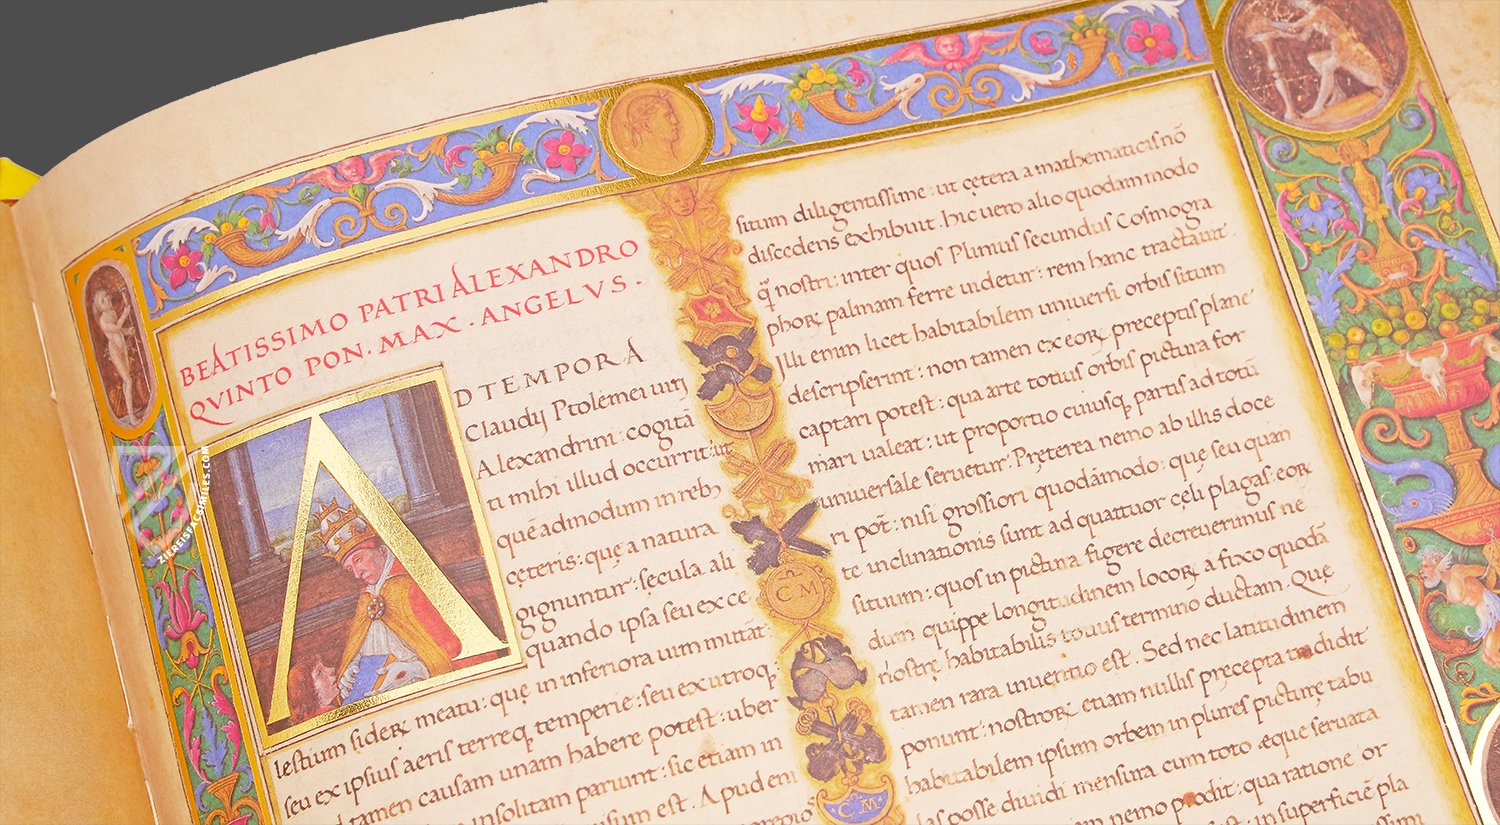 BEATISSIMO PATRI ALEXANDRO
QVINTO PON. MAX. ANGELVS.
AD TEMPORA
Claudij Ptolemei uirj
Alexandrini: cogitā
ti mihi illud occurrit: ut
quēadmodum in reb
cęteris: quę a natura
gignuntur: sęcula ali
quando ipsa seu exce
dunt seu in inferiora uim mutāt
lestium siderꝝ meatu: quę in inferiora uim mutāt
seu ex ipsius aeris terreq temperie: seu ex utroq
tamen causam unam habere potest: uber
insolitam pariunt: sic etiam in
sium est. Apud em
situm diligentissime: ut cętera a mathematicis nō
discedens exhibuit. hic uero alio quodam modo
q̃ nostri: inter quos Plinius secundus Cosmogra
phoꝝ palmam ferre uidetur: rem hanc tractauit.
Illi enim licet habitabilem uniuersi orbis situm
descripserint: non tamen ex eoꝝ preceptis plane
captari potest: qua arte totius orbis pictura for
mari ualeat: ut proportio cuiusq partis ad totū
uniuersale seruetur. Pręterea nemo ab illis doce
ri pot̄: nisi grossiori quodāmodo: quę seu quan
te inclinationis sunt ad quattuor cęli plagas: eoꝝ
situum: quos in pictura figere decreuerimus ne
dum quippe longitudinem locoꝝ a fixo quodā
nostrę habitabilis totius termino ductam. Quę
tamen rara inuentio est. Sed nec latitudinem
ponunt: nostroꝝ etiam nullis precepta tradidit
habitabilem ipsum orbem in plures picturę tabu
las posse diuidi mensura cum toto ęque seruata
nemo prodit: qua ratione or
in superficiē pla
C M
C M
ZIEREIS FACSIMILES.COM